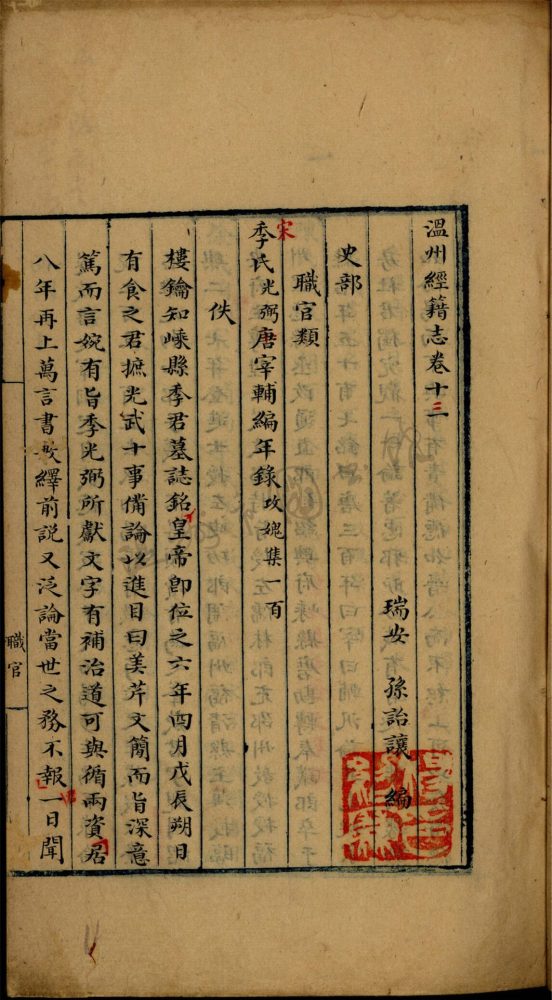 溫州經籍志卷十三
瑞安 孫詒讓 編
史部
職官類
宋
季氏光弼唐宰輔編年錄攻媿集一百
佚
樓鑰知嵊縣季君墓誌銘皇帝卽位之六年四月戊辰朔日
有食之君摭光武十事備論以進目曰美芹文簡而指深意
篤而言婉有旨季光弼所獻文字有補治道可與循兩資居
八年再上萬言書敷繹前說又泛論當世之務不報一日聞
職官